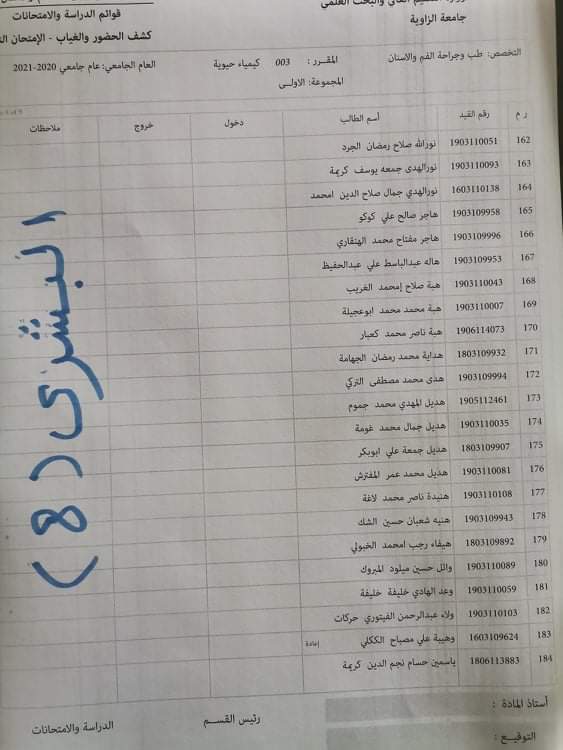 والبحث العلمي
جامعة الزاوية
قوائم الدراسة والامتحانات
كشف الحضور والغياب - الإمتحان
التخصص: طب وجراحة الفم والأسنان
المقرر : 003 كيمياء حيوية
العام الجامعي: عام جامعي 2020-2021
المجموعة: الاولى
ر م رقم القيد أسم الطالب دخول خروج ملاحظات
162 1903110051 نورالله صلاح رمضان الجرد
163 1903110093 نورالهدى جمعه يوسف كريمة
164 1603110138 نورالهدي جمال صلاح الدين امحمد
165 1903109958 هاجر صالح علي كوكو
166 1903109996 هاجر مفتاح محمد الهنقاري
167 1903109953 هاله عبدالباسط علي عبدالحفيظ
168 1903110043 هبة صلاح إمحمد الغريب
169 1903110007 هبة محمد محمد ابوعجيلة
170 1906114073 هبة ناصر محمد كعبار
171 1803109932 هداية محمد رمضان الجهامة
172 1903109994 هدى محمد مصطفى التركي
173 1905112461 هديل المهدي محمد جموم
174 1903110035 هديل جمال محمد غومة
175 1803109907 هديل جمعة علي ابوبكر
176 1903110081 هديل محمد عمر المفترش
177 1903110108 هنيدة ناصر محمد لاغة
178 1903109943 هنيه شعبان حسين الشك
179 1803109892 هيفاء رجب امحمد الخبولي
180 1903110089 وائل حسين ميلود المبروك
181 1903110059 وعد الهادي خليفة خليفة
182 1903110103 ولاء عبدالرحمن الفيتوري حركات
183 1603109624 وهيبة علي مصباح الككلي إعادة
184 1806113883 ياسمين حسام نجم الدين كريمة
البشرى (8)
أستاذ المادة :
رئيس القسم
الدراسة والامتحانات
التوقيع :